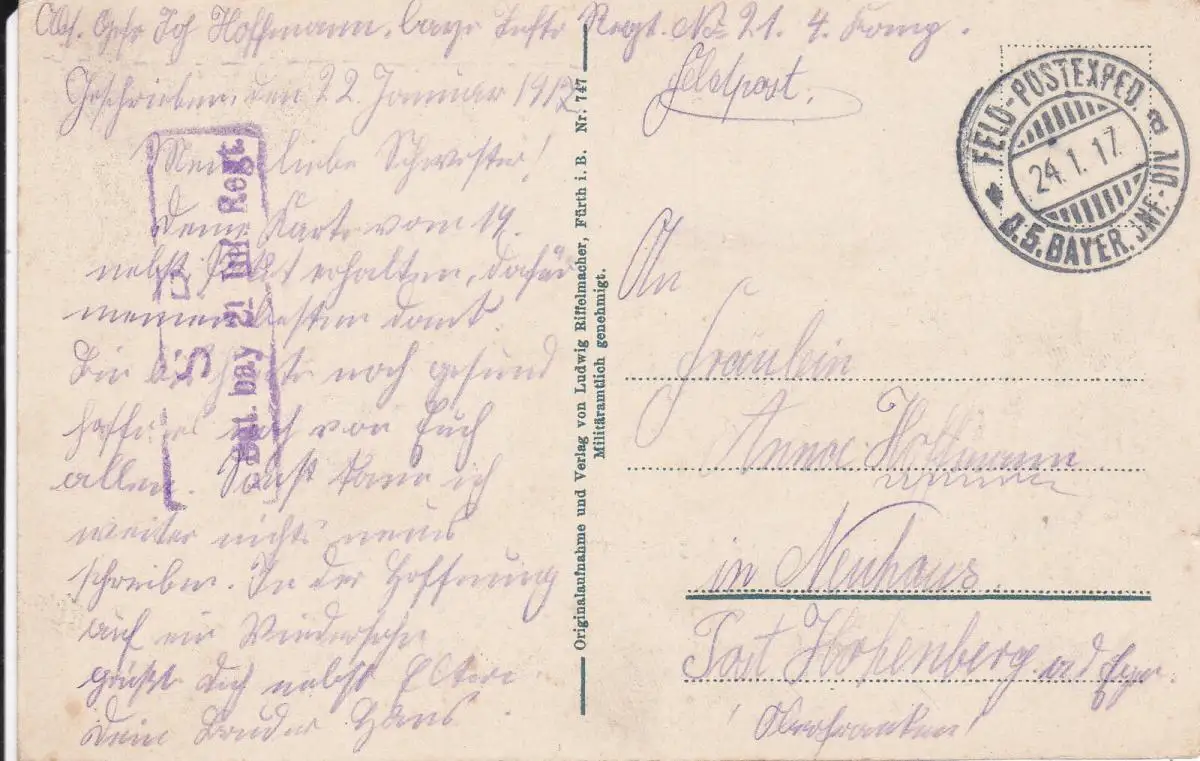 Abs. Gefr Joh Hoffmann, bayr Inftr Regt. No 21. 4. Komp.
Geschrieben, den 22 Januar 1917
Feldpost.
FELD-POSTEXPED. a
24.1.17.
D.5.BAYER.INF-DIV
Meine liebe Schwester!
Deine Karte vom 17.
nebst erhalten, dafür
meinen besten Dank.
Bin bis heute noch gesund
hoffe es auch von Euch
allen. Sonst kann ich
weiter nichts neues
schreiben. In der Hoffnung
auf ein Wiedersehn
grüßt Dich nebst Eltern
Dein Bruder Hans
S. B.
Batl. bay 21 Inf Regt.
Originalaufnahme und Verlag von Ludwig Riffelmacher, Fürth i. B. Nr. 747
Militäramtlich genehmigt.
An
Fräulein
Anna Hoffmann
in Neuhaus.
Post Hohenberg ad Eger
Oberfranken!